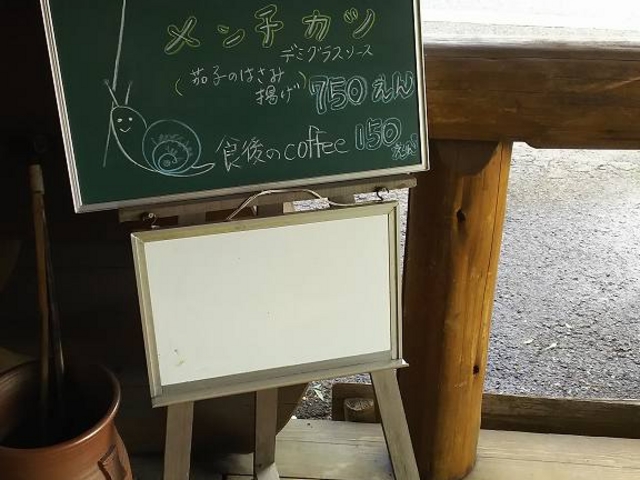 メンチカツ
デミグラスソース
(茄子のはさみ
揚げ) 750えん
食後のcoffee 150